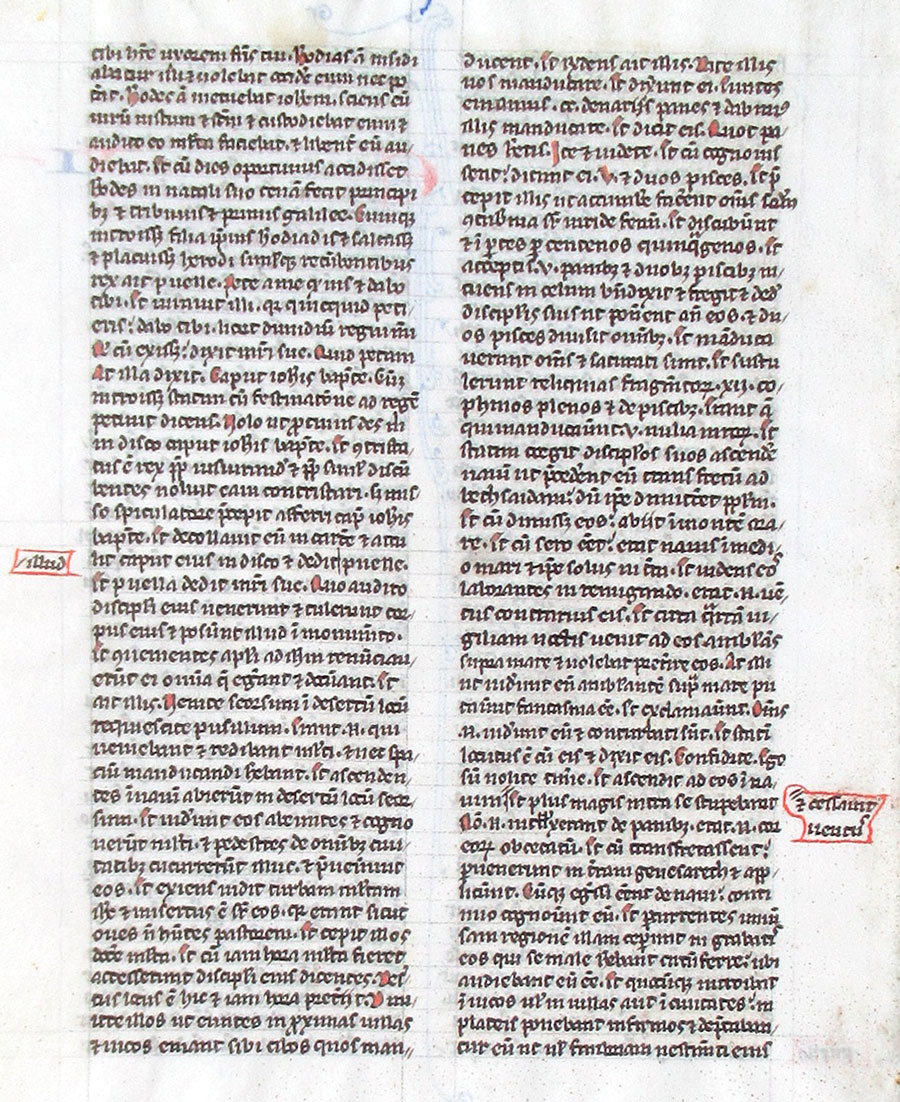 tibi hr̄e uxorem fr̄is tui. Hodias aū insidi
abatur illi ⁊ volebat occidē eum nec po
t̄at. Hodes aū metuebat ioh̄em. sciens eū
virū iustum ⁊ sc̄m ⁊ custodiebat eum ⁊
audito eo ml̄ta faciebat. ⁊ libent̄ eū au/
diebat. Et cū dies oportunus accidisset
h̄odes in natali suo cenā fecit principi
bꝫ ⁊ tribunis ⁊ primis galilee. Cumqꝫ
introissꝫ filia ip̄ius h̄odiadis ⁊ saltassꝫ
⁊ placuissꝫ herodi simlꝫ recūbentibus
rex ait puelle. Pete a me q̄ uis ⁊ dabo
tibi. Et iuravit illi. qꝛ quicquid peti
eris: dabo tibi. licet dimidiū regni mei
Q̄ cū exissꝫ: dixit mr̄i sue. Quid petam
At illa dixit. Caput ioh̄is bapt̄e. Cūqꝫ
introissꝫ statim cū festinatōne ad regē
petivit dicens. Volo ut ꝓtinus des m̄
in disco caput ioh̄is bapt̄e. Et ꝯtrista/
tus ē rex ꝓp̄ iusiurand̄ ⁊ ꝓp̄ siml̄ discū
bentes noluit eam contristari. sꝫ mis/
so spiculatore p̄cepit afferri cap̄ ioh̄is
bapt̄e. Et decollavit eū in carc̄e ⁊ attu/
lit caput eius in disco ⁊ dedit puelle.
illud
Et puella dedit mr̄i sue. Quo audito
discipl̄i eius venerunt ⁊ tulerunt cor/
pus eius ⁊ posūnt illud ī monum̄to.
Et ꝯvenientes apl̄i ad ih̄m renūciav/
erūt ei omīa q̄ eḡant ⁊ docūant. Et
ait illis. Venite seorsum ī desertū locū
requiescite pusillum. Erant .n. qui
veniebant ⁊ redibant ml̄ti. ⁊ nec spa/
ciū manducandi h̄ebant. Et ascenden/
tes ī navī abierūt in desertū locū seor/
sum. Et vid̄unt eos abeuntes ⁊ cogno
verūt ml̄ti. ⁊ pedestres de om̄ibꝫ civi/
tatibꝫ cucurrerūt illuc. ⁊ p̄venerunt
eos. Et exiens vidit turbam ml̄tam
ih̄c ⁊ misertus ē sr̄ eos. qꝛ erant sicut
oves n̄ h̄ntes pastorem. Et cepit illos
doc̄e ml̄ta. Et cū iam hora ml̄ta fieret
accesserunt discipl̄i eius dicentes. Des/
tus locus ē hic ⁊ iam hora pret̄iit. Dim/
itte illos ut euntes in ꝓximas villas
⁊ vicos emant sibi cibos quos man/
ducent. Et rn̄dens ait illis. Date illis
vos manducare. Et dixerunt ei. Euntes
emamus .cc. denariis panes ⁊ dabimꝰ
illis manducare. Et dicit eis. Quot pa/
nes h̄etis. Ite ⁊ videte. Et cū cognovis
sent: dicunt ei. v. ⁊ duos pisces. Et p̄
cepit illis ut accumb̄e fac̄ent om̄s scd̄m
ꝯtub̄nia sr̄ viride fenū. Et discubūnt
⁊ ī ꝑtes ꝑ centenos quīq̄genos. Et
acceptis .v. panibꝫ ⁊ duobꝫ piscibꝫ in/
tuens in celum bn̄dixit ⁊ fregit ⁊ ded̄
discipl̄is suis ut pon̄ent an̄ eos. ⁊ du/
os pisces divisit om̄ibꝫ. Et māduca
verunt om̄s ⁊ saturati sunt. Et sustu
lerunt reliquias fragm̄toꝝ .xii. co/
phinos plenos ⁊ de piscibꝫ. Erant aū
qui manducaūnt .v. milia viroꝝ. Et
statim coegit discipl̄os suos ascend̄e
navī ut p̄ced̄ent eū trans fretū ad
bethsaidam: dū ip̄e dimitt̄et ppl̄m.
Et cū dimissꝫ eos: abiit ī montē ora/
re. Et cū sero eēt: erat navis ī medi/
o mari ⁊ ip̄e solus in t̄ra. Et videns eos
laborantes in remigando. erat .n. vē/
tus contrarius eis. Et circa q̄rtā vi/
giliam noctis venit ad eos ambulās
supra mare ⁊ volebat pret̄ire eos. At illi
ut vid̄unt eū ambulantē sup̄ mare pu
taūnt fantasma eē. Et exclamaūnt. Om̄s
.n. vid̄unt eū ⁊ conturbati sūt. Et statī
locutus ē cū eis ⁊ dixit eis. Confidite. Ego
sū nolite tim̄e. Et ascendit ad eos ī na/
vim Et plus magis intra se stupebant
⁊ cessavit
ventus
Nō .n. intellexerant de panibꝫ. erat .n. cor
eoꝝ obcecatū. Et cū transfretassent:
ꝑvenerunt in t̄ram genesareth ⁊ app/
licūnt. Cūqꝫ eḡssi eēnt de navi: conti
nuo cognoūnt eū. Et ꝑcurrentes univ̄
sam regionē illam cep̄unt in grabatis
eos qui se male h̄ebant circūferre: ubi
audiebant eū eē. Et quocūqꝫ introibat
ī vicos ul̄ in villas aut ī civitates: in
plateis ponebant infirmos ⁊ dep̄caban/
tur eū ut ul̄ fimbriam vestim̄ti eius